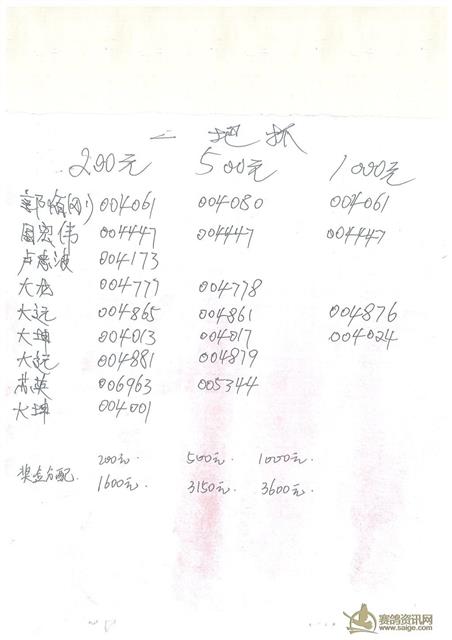 一 把 抓
200元 500元 1000元
004061 004080 004061
周宏伟 004447 004447 004447
卢 波 004173
大龙 004777 004778
大远 004865 004861 004876
大坤 004013 004017 004024
大远 004881 004879
英 006963 005344
大坤 004001
200元. 500元. 1000元.
奖金分配. 1600元. 3150元. 3600元.
赛鸽资讯网
www.saige.com